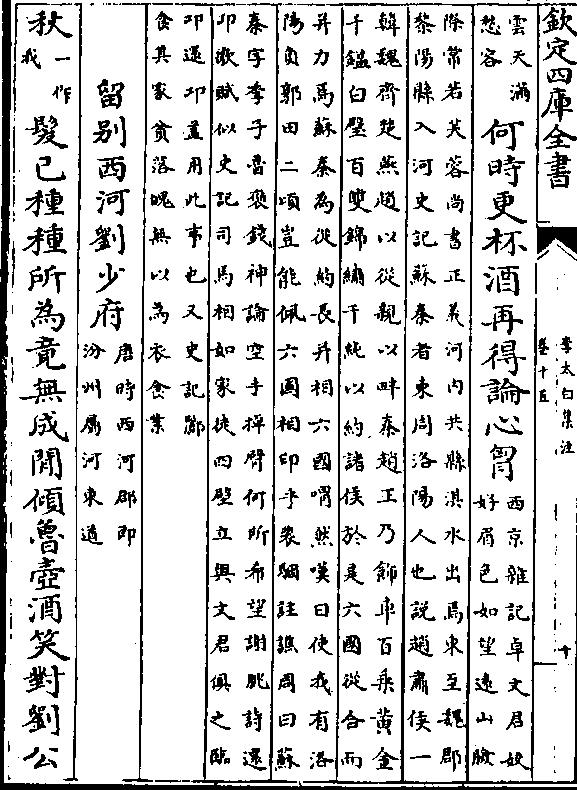 欽定四庫全書
李太白集注
卷十五
十
雲天滿
愁容
何時更杯酒再得論心胷
西京雜記卓文君姣
好眉色如望遠山臉
際常若芙蓉尚書正義河内共縣淇水出焉東至魏郡
黎陽縣入河史記蘇秦者東周洛陽人也說趙肅侯一
韓魏齊楚燕趙以從親以畔秦趙王乃飾車百乘黄金
千鎰白璧百雙錦繡千純以約諸侯於是六國從合而
并力焉蘇秦為從約長并相六國喟然嘆曰使我有洛
陽負郭田二頃豈能佩六國相印乎裴駰註譙周曰蘇
秦字季子魯褒錢神論空手掉臂何所希望謝朓詩還
卭歌賦似史記司馬相如家徒四壁立與文君俱之臨
卭還卭蓋用此事也又史記酈
食其家貧落魄無以為衣食業
留别西河劉少府
唐時西河郡即
汾州屬河東道
秋
一作
我
髮已種種所為竟無成閒傾魯壺酒笑對劉公